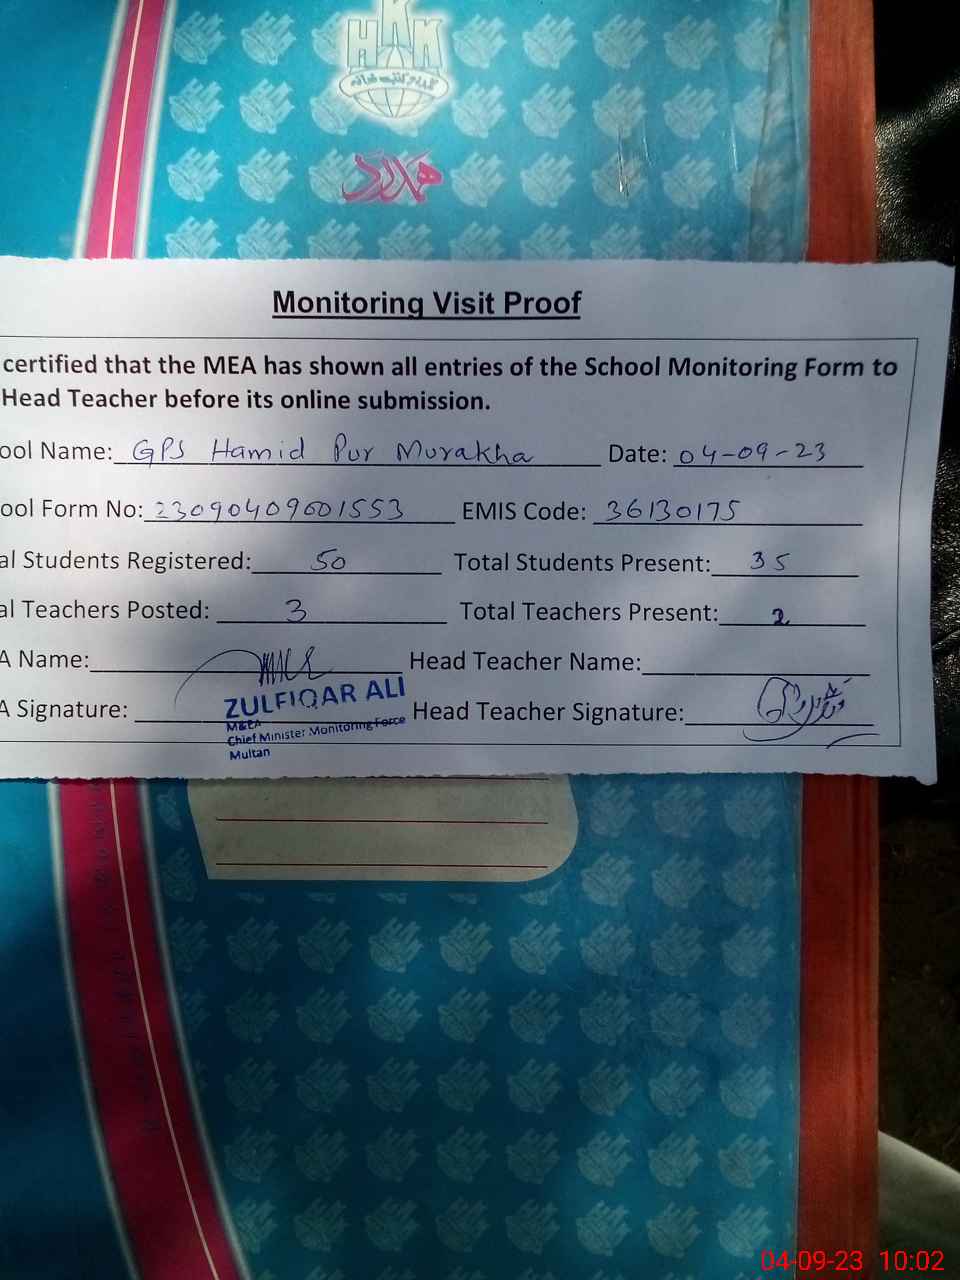 HKM
ہمدرد
Monitoring Visit Proof
certified that the MEA has shown all entries of the School Monitoring Form to
Head Teacher before its online submission.
ool Name: GPS Hamid Pur Murakha Date: 04-09-23
ool Form No: 23090409601553 EMIS Code: 36130175
al Students Registered: 50 Total Students Present: 35
al Teachers Posted: 3 Total Teachers Present: 2
A Name: Head Teacher Name:
A Signature: Head Teacher Signature:
ZULFIQAR ALI
M&EA
Chief Minister Monitoring Force
Multan
04-09-23 10:02